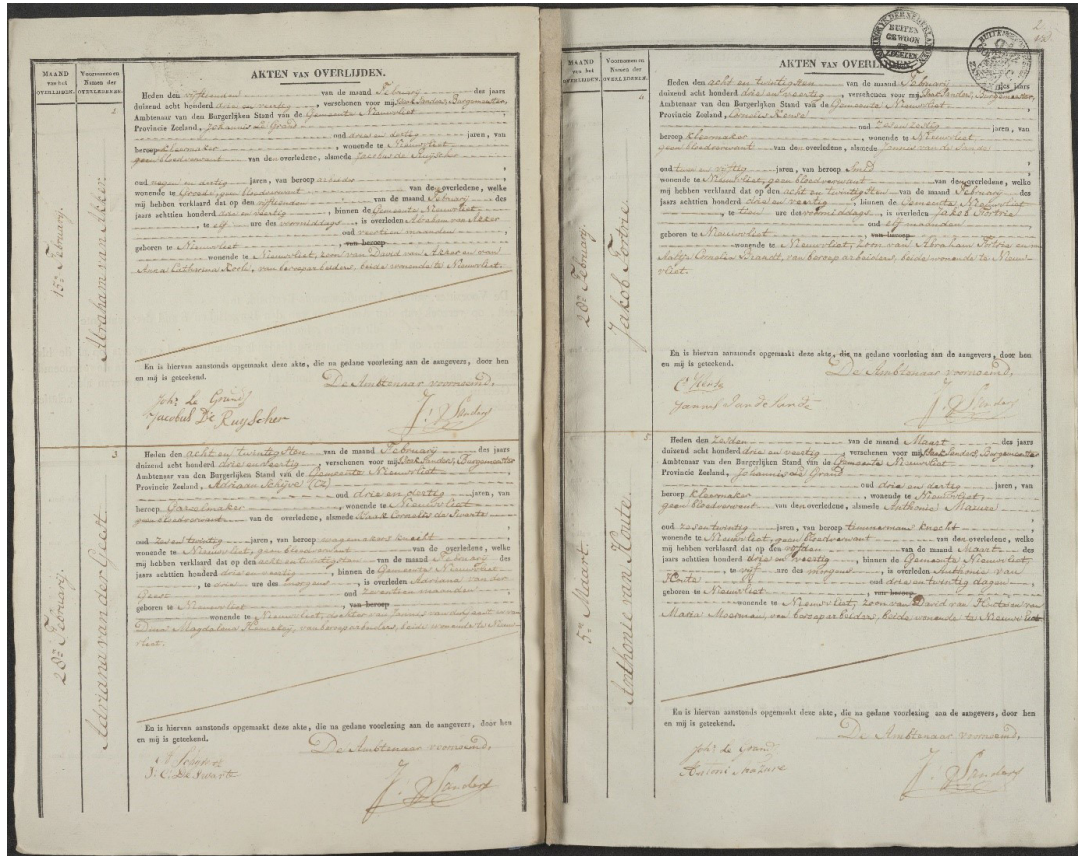 MAAND
van het
OVERLIJDEN.
Voornamen en
Namen der
OVERLEDENEN.
AKTEN VAN OVERLIJDEN.
2
15de Februarij
Abraham van Akker
Heden den vijftienden van de maand Februarij des jaars
duizend acht honderd drie en veertig, verschenen voor mij Sanders, Burgemeester,
Ambtenaar van den Burgerlijken Stand van de Gemeente Nieuwvliet
Provincie Zeeland, Johannis Le Grand
oud drie en dertig jaren, van
beroep Kleermaker, wonende te Nieuwvliet
geen bloedverwant van den overledene, alsmede Jacobus de Ruijscher
oud negen en dertig jaren, van beroep arbeider
wonende te Groede, geen bloedverwant van den overledene, welke
mij hebben verklaard dat op den vijftienden van de maand Februarij des
jaars achttien honderd drie en veertig, binnen de Gemeente Nieuwvliet
te elf ure des voormiddags, is overleden Abraham van Akker
oud maanden
geboren te Nieuwvliet, van beroep
wonende te Nieuwvliet, zoon van David van Akker en van
Anna Catharina, van beroep arbeiders, beide wonende te Nieuwvliet.
En is hiervan aanstonds opgemaakt deze akte, die na gedane voorlezing aan de aangevers, door hen
en mij is geteekend.
De Ambtenaar voornoemd,
Johs Le Grand
Jacobus De Ruyscher
Sanders
3
28ste Februarij
Adriana van der Geest
Heden den acht en twintigsten van de maand Februarij des jaars
duizend acht honderd drie en veertig, verschenen voor mij Sanders, Burgemeester
Ambtenaar van den Burgerlijken Stand van de Gemeente Nieuwvliet
Provincie Zeeland, Adriaan
oud drie en dertig jaren, van
beroep, wonende te Nieuwvliet
geen bloedverwant van de overledene, alsmede Izaak Cornelis de Swarte
oud zes en twintig jaren, van beroep wagenmakers knecht
wonende te Nieuwvliet, geen bloedverwant van de overledene, welke
mij hebben verklaard dat op den acht en twintigsten van de maand Februarij des
jaars achttien honderd drie en veertig, binnen de Gemeente Nieuwvliet
te drie ure des morgens, is overleden Adriana van der
Geest oud zeventien maanden
geboren te Nieuwvliet, van beroep
wonende te Nieuwvliet, dochter van van der Geest en van
Magdalena, van beroep arbeiders, beide wonende te Nieuw-
vliet.
En is hiervan aanstonds opgemaakt deze akte, die na gedane voorlezing aan de aangevers, door hen
en mij is geteekend.
De Ambtenaar voornoemd,
I: C. De Swarte
Sanders
MAAND
van het
OVERLIJDEN.
Voornamen en
Namen der
OVERLEDENEN.
AKTEN VAN OVERLIJDEN.
BUITEN
GEWOON
ZEGEL
4
28ste Februarij
Jakob Fortrie
Heden den acht en twintigsten van de maand Februarij des jaars
duizend acht honderd drie en veertig, verschenen voor mij Sanders, Burgemeester,
Ambtenaar van den Burgerlijken Stand van de Gemeente Nieuwvliet
Provincie Zeeland, Cornelis
oud zes en zestig jaren, van
beroep Kleermaker, wonende te Nieuwvliet
geen bloedverwant van den overledene, alsmede Jannis van de Sande
oud twee en vijftig jaren, van beroep Smid
wonende te Nieuwvliet, geen bloedverwant van den overledene, welke
mij hebben verklaard dat op den acht en twintigsten van de maand Februarij des
jaars achttien honderd drie en veertig, binnen de Gemeente Nieuwvliet
te tien ure des voormiddags, is overleden Jakob Fortrie
oud elf maanden
geboren te Nieuwvliet, van beroep
wonende te Nieuwvliet, zoon van Abraham Fortrie en van
Cornelia Brandt, van beroep arbeiders, beide wonende te Nieuw-
vliet.
En is hiervan aanstonds opgemaakt deze akte, die na gedane voorlezing aan de aangevers, door hen
en mij is geteekend.
De Ambtenaar voornoemd,
Jannis Sanders
5
5de Maart
Anthonie van Houte
Heden den zesden van de maand Maart des jaars
duizend acht honderd drie en veertig, verschenen voor mij Sanders, Burgemeester
Ambtenaar van den Burgerlijken Stand van de Gemeente Nieuwvliet
Provincie Zeeland, Johannis Le Grand
oud drie en dertig jaren, van
beroep Kleermaker, wonende te Nieuwvliet
geen bloedverwant van den overledene, alsmede Anthonie
oud zes en twintig jaren, van beroep timmerman knecht
wonende te Nieuwvliet, geen bloedverwant van den overledene, welke
mij hebben verklaard dat op den vijfden van de maand Maart des
jaars achttien honderd drie en veertig, binnen de Gemeente Nieuwvliet,
te vijf ure des morgens, is overleden Anthonie van
Houte oud drie en twintig dagen
geboren te Nieuwvliet, van beroep
wonende te Nieuwvliet, zoon van David van Houte en van
Maria Moerman, van beroep arbeiders, beide wonende te Nieuwvliet
En is hiervan aanstonds opgemaakt deze akte, die na gedane voorlezing aan de aangevers, door hen
en mij is geteekend.
De Ambtenaar voornoemd,
Johs Le Grand
Antoni Mazure
Sanders